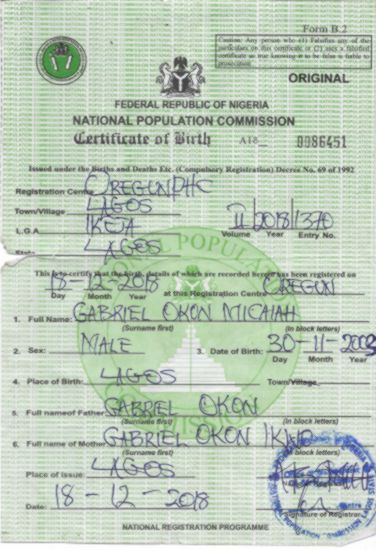 Form B.2
Caution: Any person who (1) Falsifies any of the
particulars on this certificate or (2) uses a falsified
certificate as true knowing it to be false is liable to
prosecution
ORIGINAL
FEDERAL REPUBLIC OF NIGERIA
NATIONAL POPULATION COMMISSION
Certificate of Birth A18 0086451
Issued under the Births and Deaths Etc. (Compulsory Registration) Decree No. 69 of 1992
Registration Centre OREGUN PHC
Town/Village LAGOS
L.G.A IKEJA II 2018 1370
Volume Year Entry No.
State LAGOS
This is to certify that the birth, details of which are recorded herein has been registered on
18-12-2018 at this Registration Centre OREGUN
Day Month Year
1. Full Name: GABRIEL OKON MICAIAH
(Surname first) (In block letters)
2. Sex: MALE 3. Date of Birth: 30-11-2003
Day Month Year
4. Place of Birth: LAGOS Town/Village
5. Full name of Father GABRIEL OKON
(Surname first) (In block letters)
6. Full name of Mother GABRIEL OKON
(Surname first) (In block letters)
Place of issue: LAGOS
Date: 18-12-2018 Signature of Registrar
NATIONAL REGISTRATION PROGRAMME